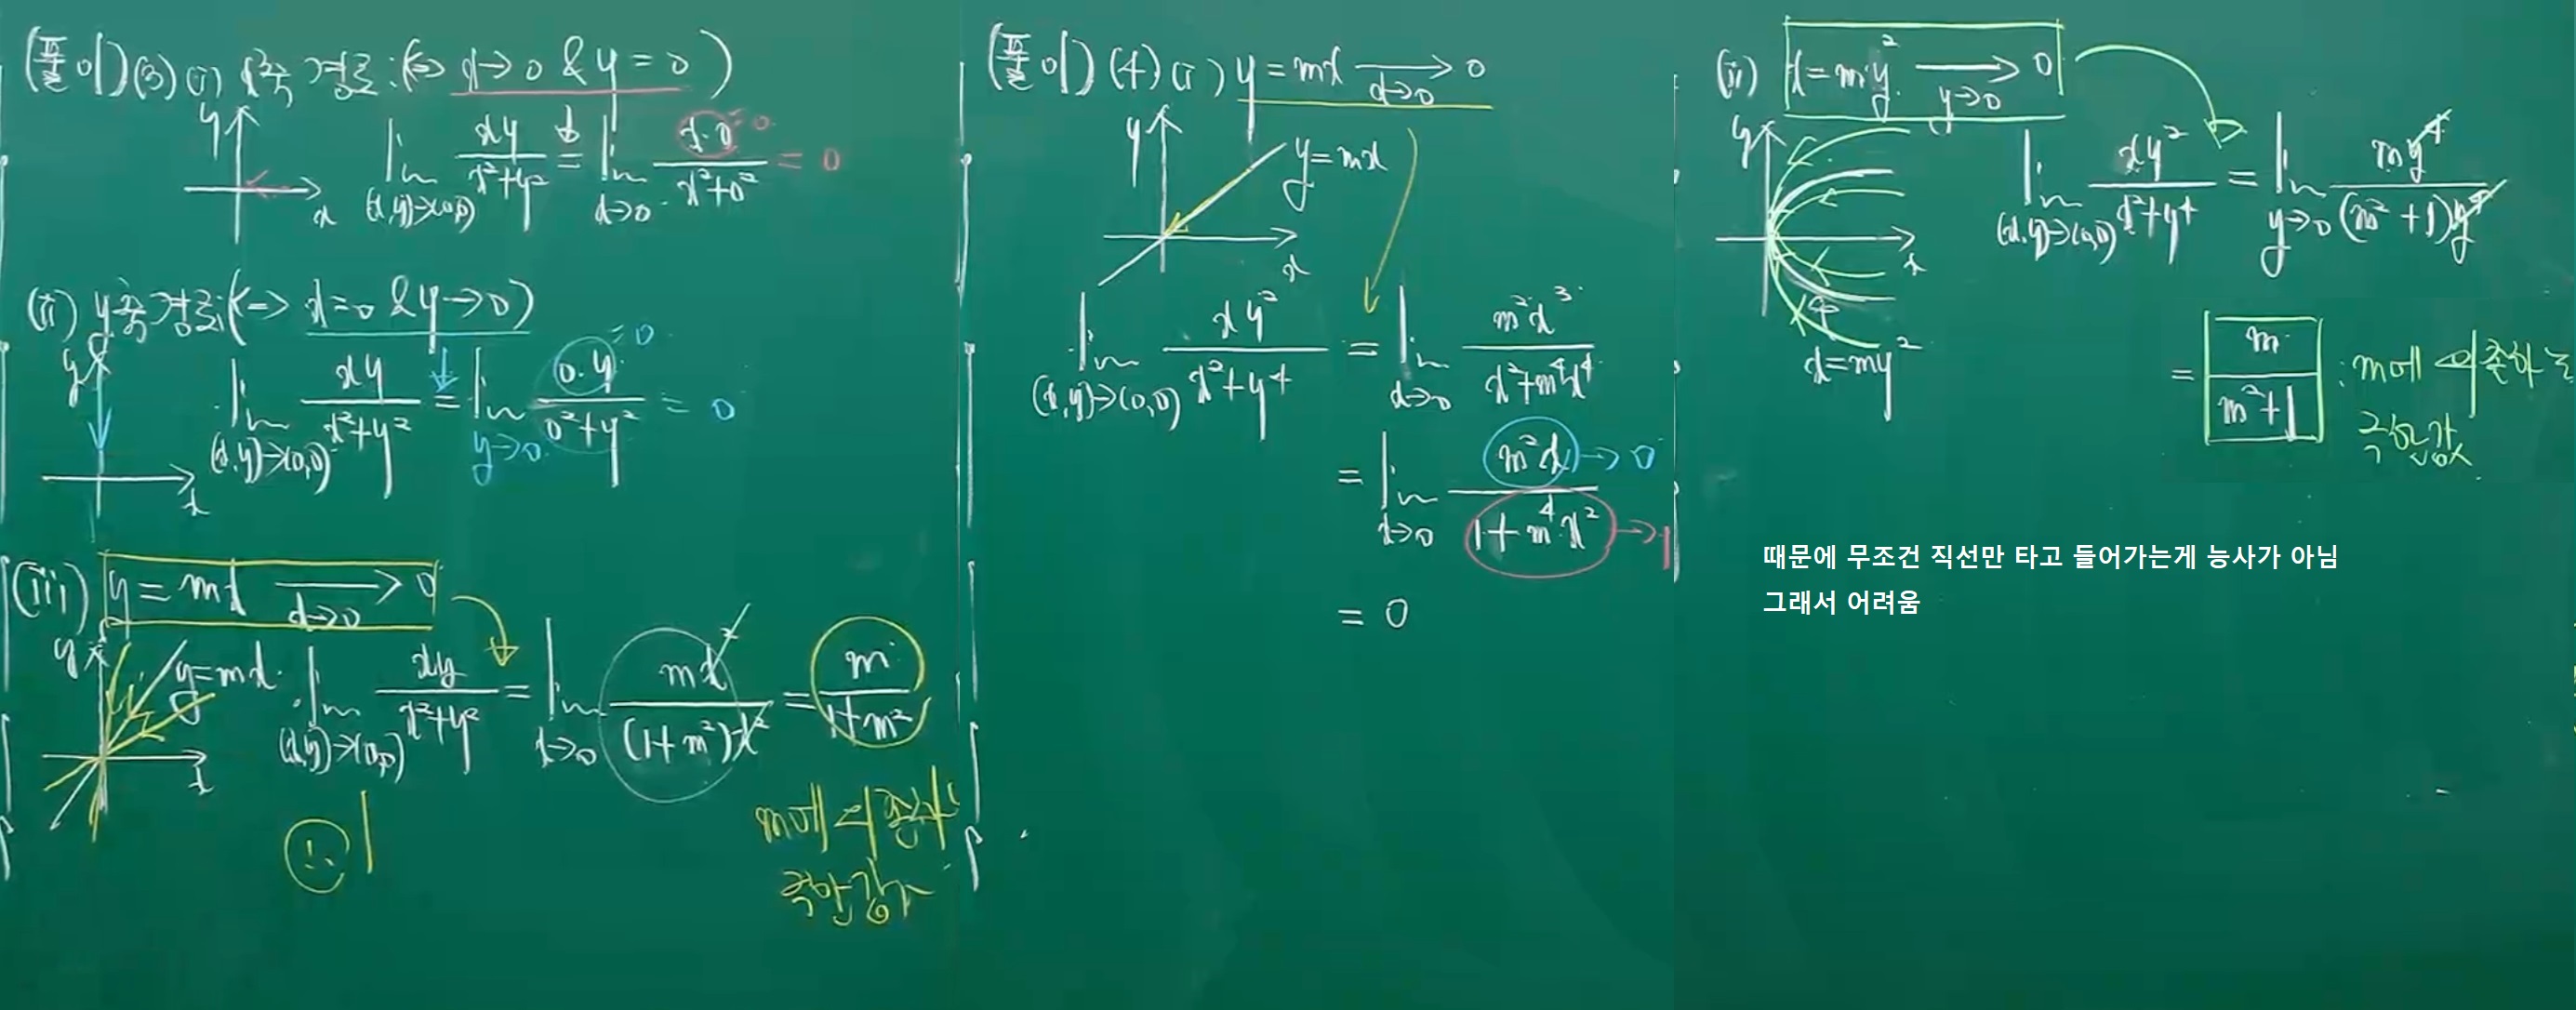 (풀이)(3) (i) x축 경로:(<=> x→0 & y=0)
y
x
lim (x,y)→(0,0) xy/(x²+y²) = lim x→0 x·0/(x²+0²) = 0
=0
(ii) y축 경로:(<=> x=0 & y→0)
y
x
lim (x,y)→(0,0) xy/(x²+y²) = lim y→0 0·y/(0²+y²) = 0
=0
(iii) y=mx → 0
x→0
y
y=mx
x
lim (x,y)→(0,0) xy/(x²+y²) = lim x→0 mx²/((1+m²)x²) = m/(1+m²)
m에 의존하는
극한값
(풀이)(4)(i) y=mx → 0
x→0
y
y=mx
x
lim (x,y)→(0,0) xy²/(x²+y⁴) = lim x→0 m²x³/(x²+m⁴x⁴)
= lim x→0 m²x/(1+m⁴x²)
→0
→1
= 0
(ii) x=my² → 0
y→0
y
x
x=my²
lim (x,y)→(0,0) xy²/(x²+y⁴) = lim y→0 my⁴/((m²+1)y⁴)
= m/(m²+1) : m에 의존하는
극한값
때문에 무조건 직선만 타고 들어가는게 능사가 아님
그래서 어려움